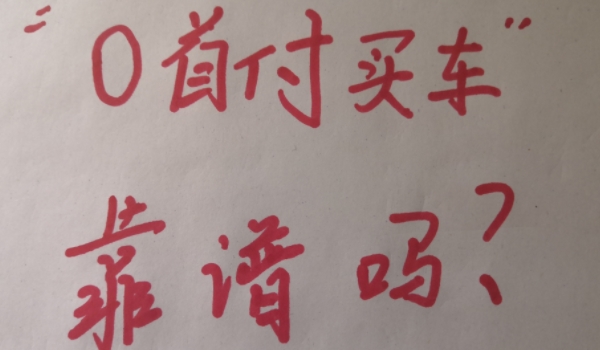 “0首付买车”
靠谱吗？